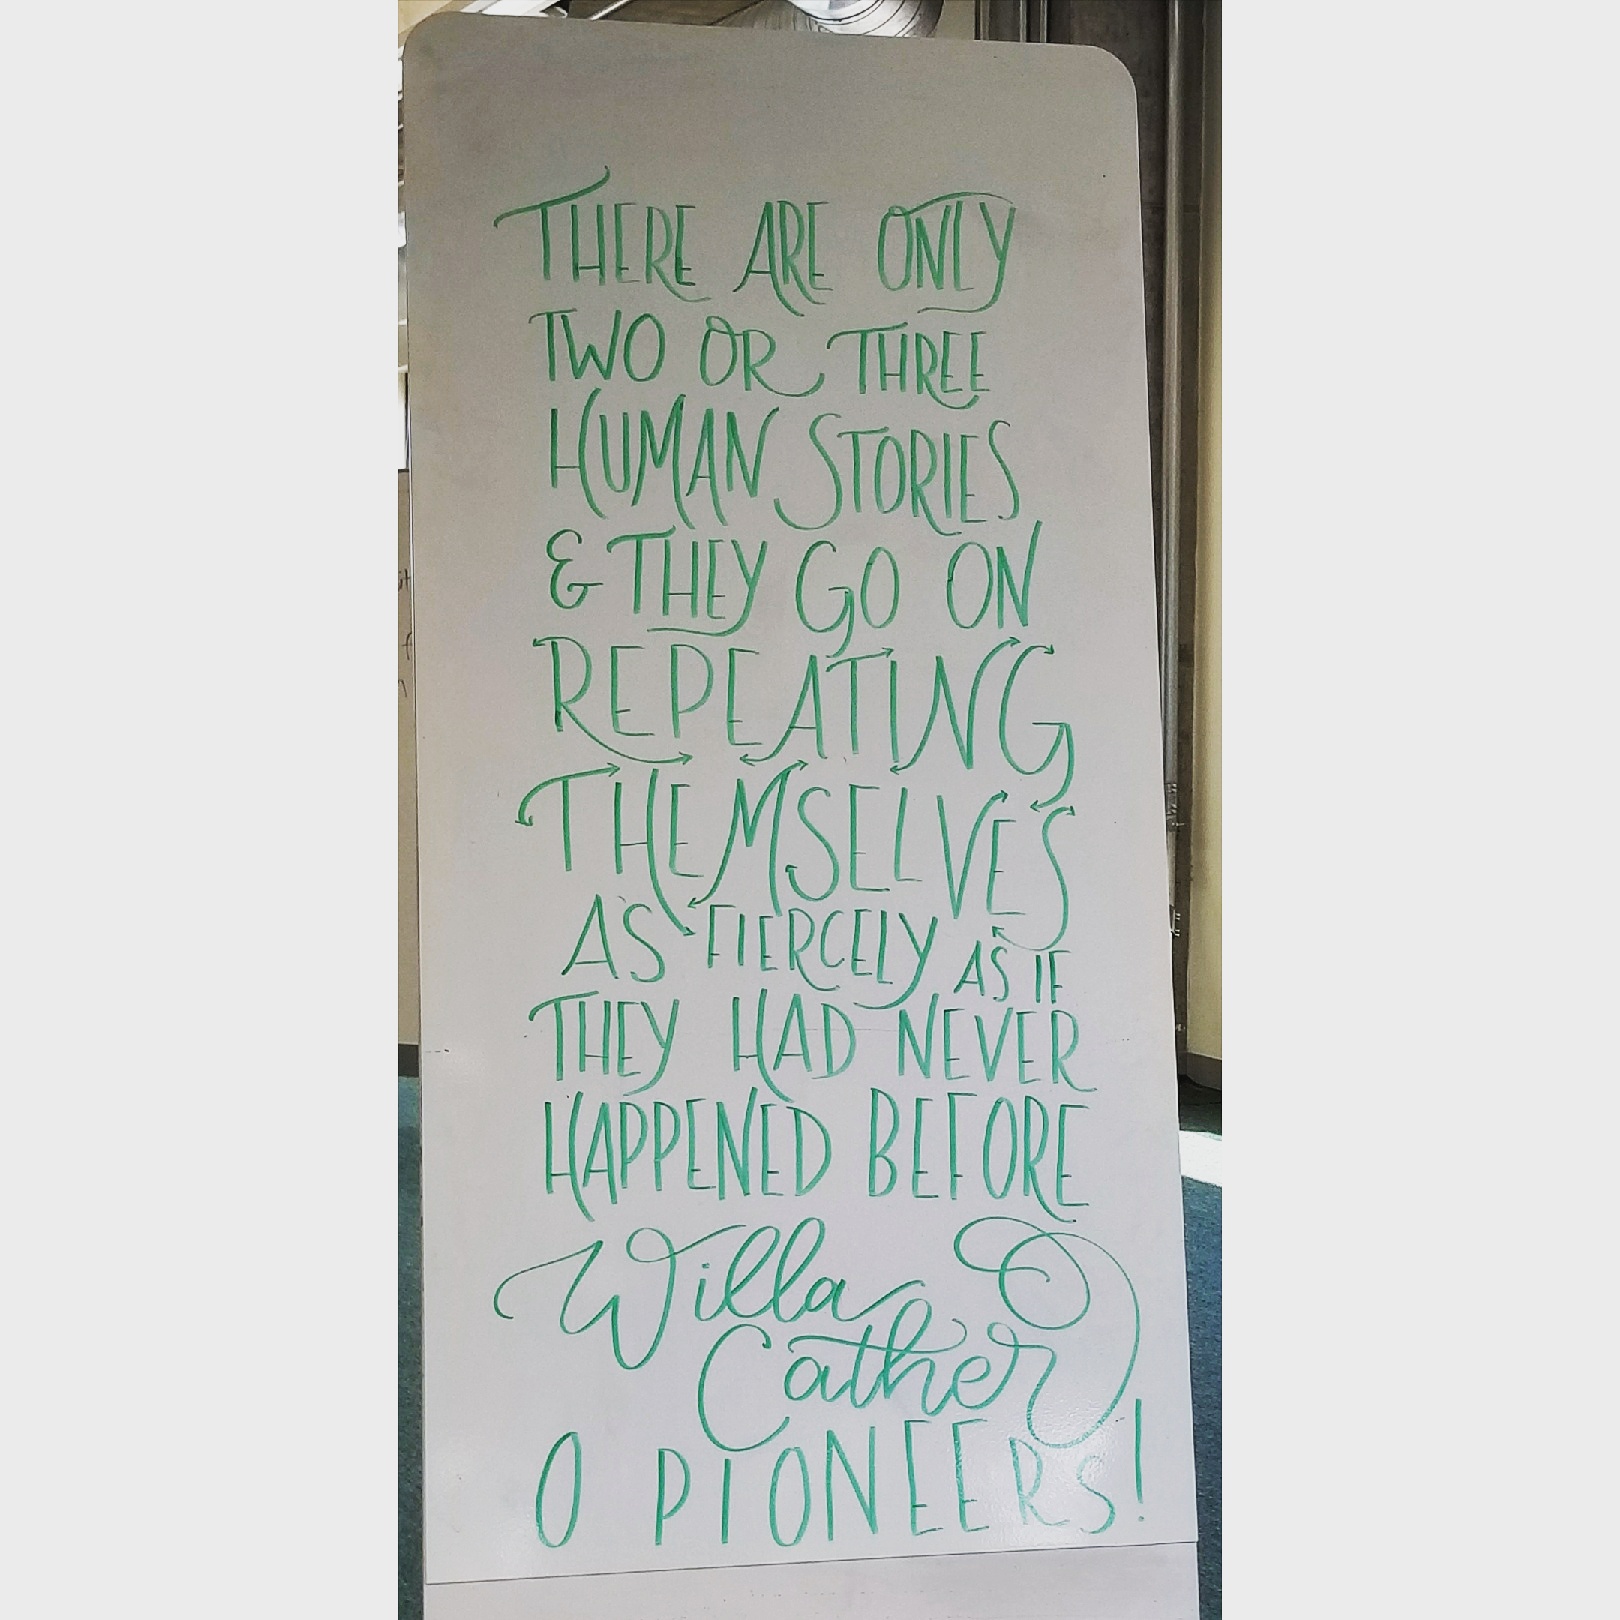 THERE ARE ONLY
TWO OR THREE
HUMAN STORIES
& THEY GO ON
REPEATING
THEMSELVES
AS FIERCELY AS IF
THEY HAD NEVER
HAPPENED BEFORE
Willa
Cather
O PIONEERS!